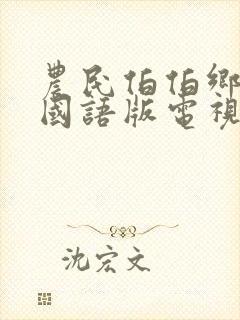 農民伯伯鄉
國語版電視
沈宏文